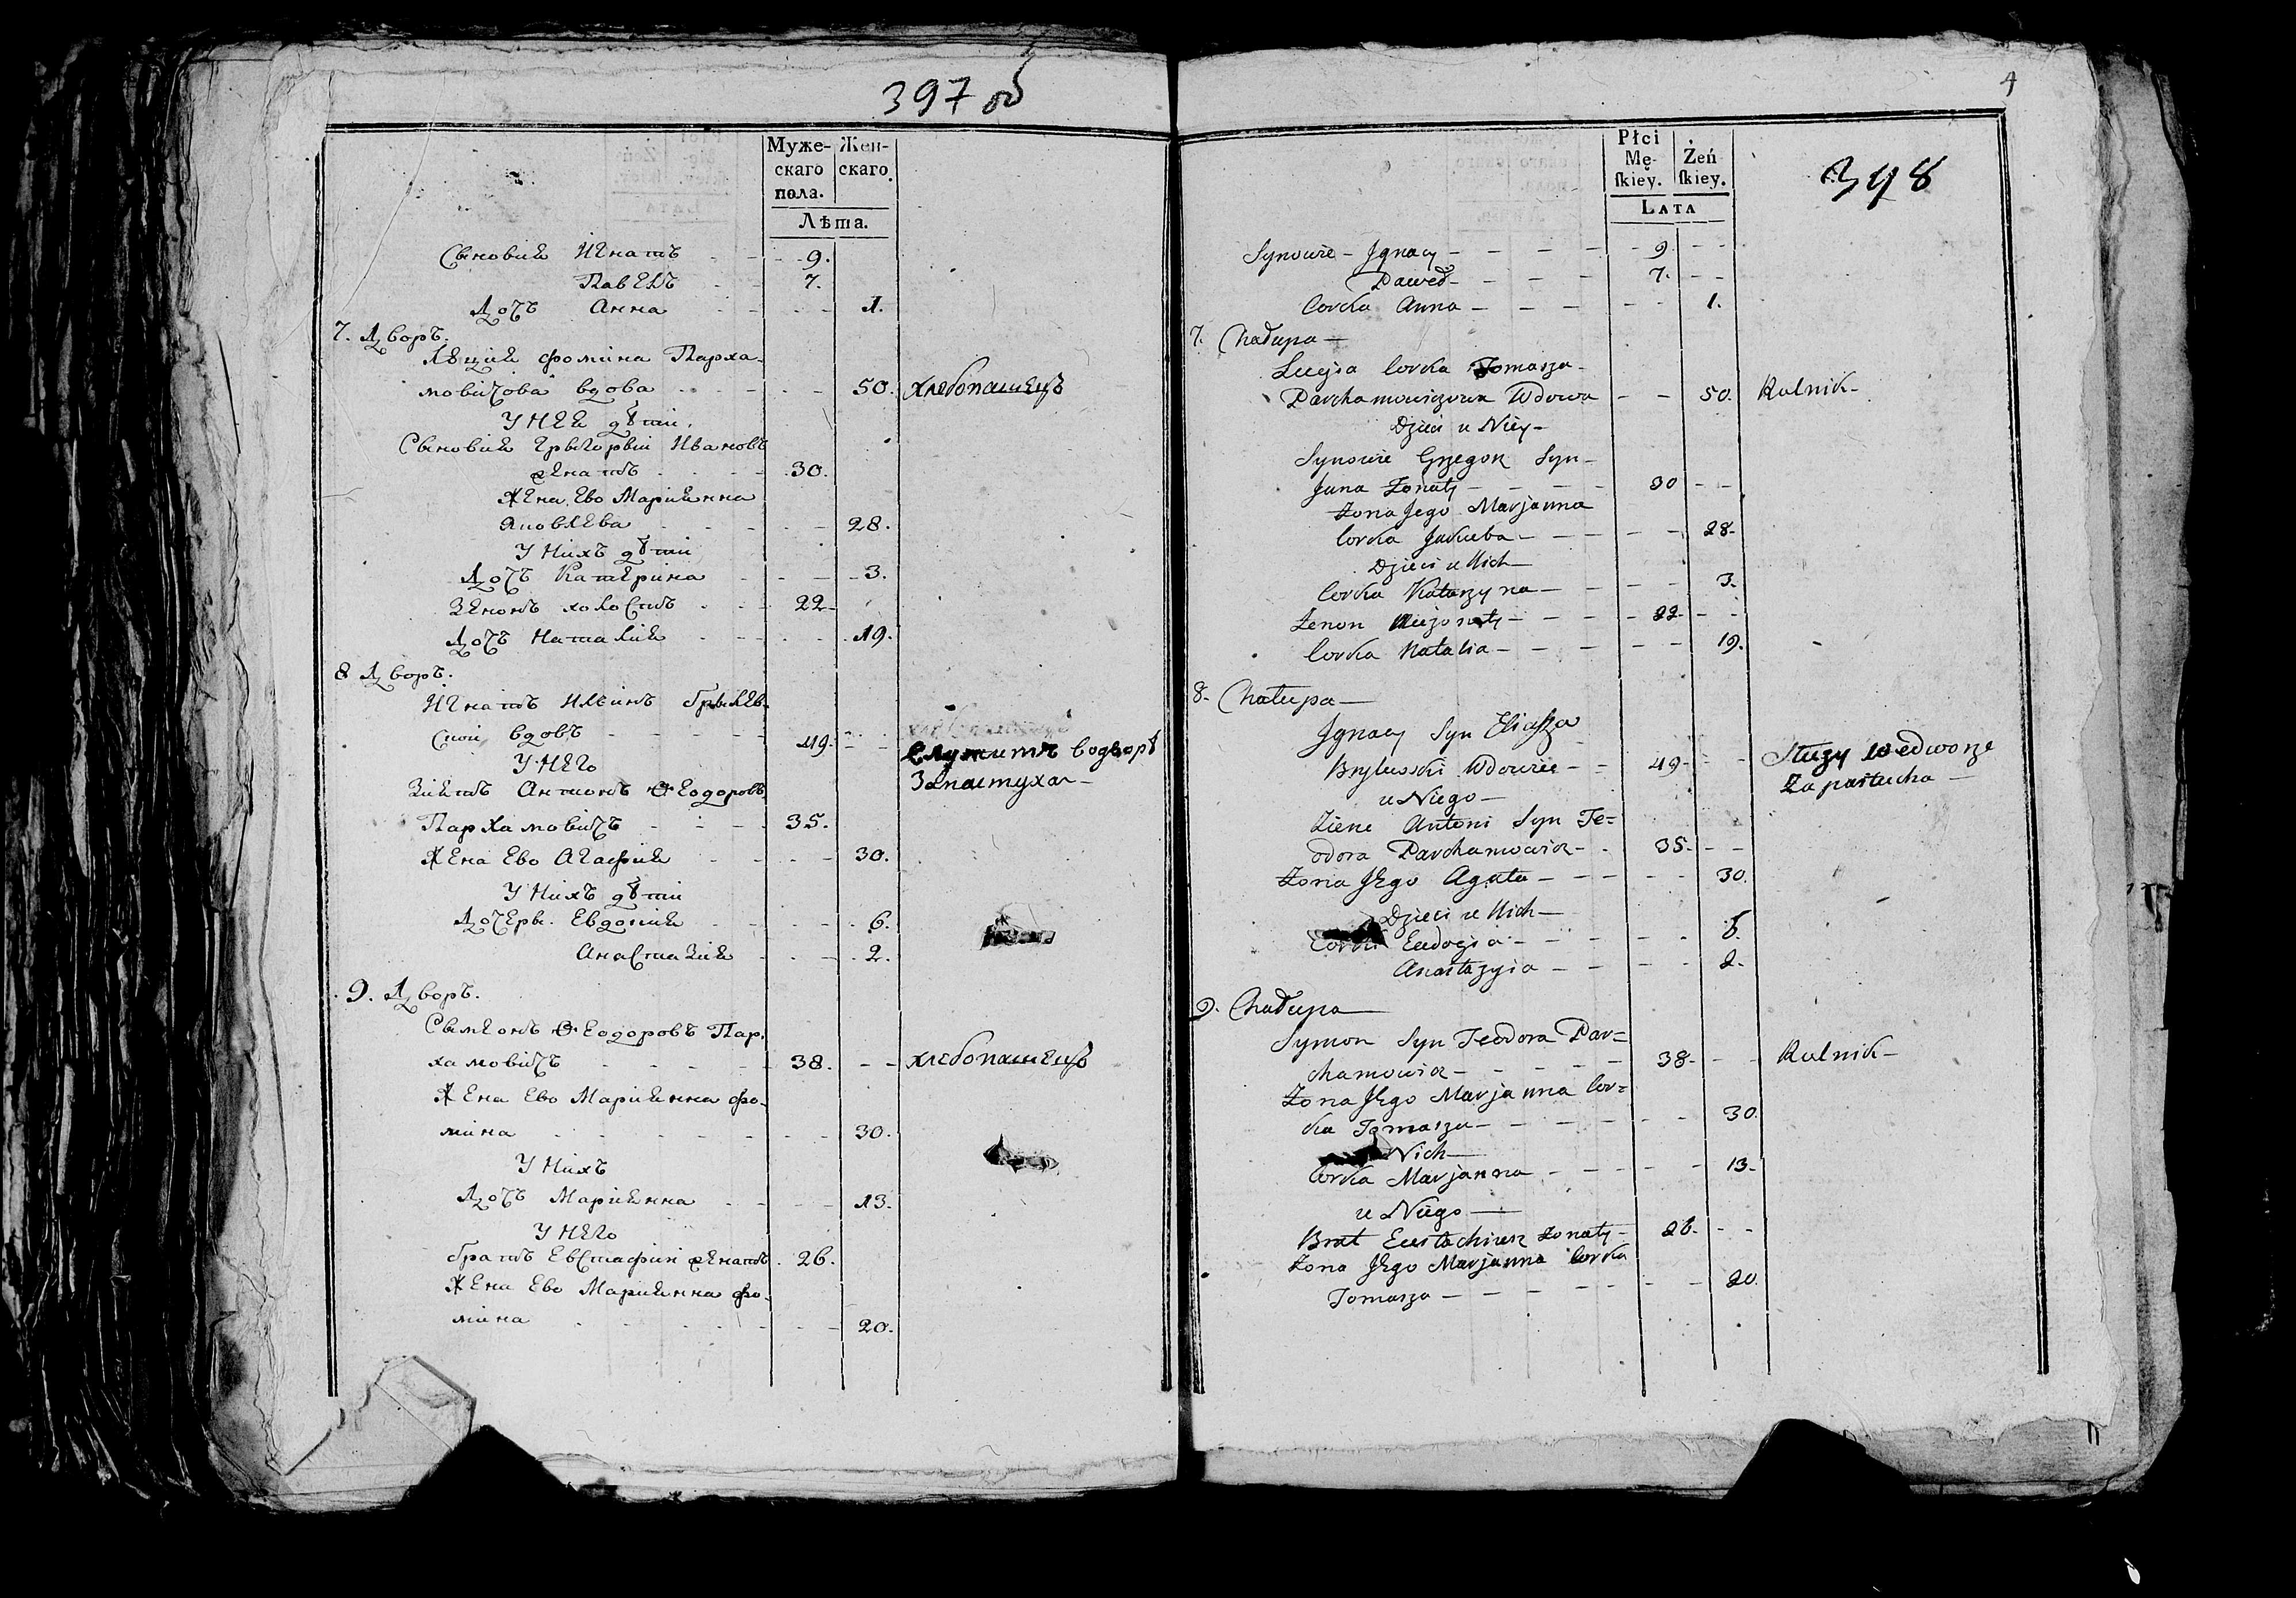 397 об
Муже-
скаго
пола.
Жен-
скаго.
Лѣта.
Сыновия Игнатъ - - 9.
Павелъ - - 7.
Дочъ Анна - - 1.
7. Дворъ.
Люция Фомина Парха-
мовичова вдова - - 50. хлебопашецъ
У нея дѣти,
Сыновия Грыгорый Ивановъ
женатъ - - 30.
Жена Ево Мариянна
Яковлева - - 28.
У нихъ дѣти
Дочъ Катерина - - 3.
Зенонъ холостъ - - 22
Дочъ Наталия - - 19.
8 Дворъ.
Игнатъ Ильинъ Брылев-
ский вдовъ - - 49 - - служитъ водворѣ
У него запастуха -
Зиятъ Антонъ Ѳеодоровъ
Пархамовичъ - - 35.
Жена Ево Агафия - - 30.
У нихъ дѣти
Дочеры. Евдокия - - 6.
Анастазия - - 2.
9. Дворъ.
Сымеонъ Ѳеодоровъ Пар-
хамовичъ - - 38. - - хлебопашецъ
Жена Ево Мариянна Фо-
мина - - 30.
У нихъ
Дочъ Мариянна - - 13.
У него
братъ Евстафий женатъ. 26.
Жена Ево Мариянна Фо-
мина - - 20.
4
398
Płci
Mę-
skiey.
Żeń
skiey.
LATA
Synowie - Jgnacy - - 9 - -
Paweł - - 7. - -
Corka Anna - - 1.
7. Chałupa -
Lucyia Corka Tomasza -
Parchamowiczowa Wdowa - - 50. Rolnik -
Dzieci u Niey -
Synowie Grzegorz Syn -
Jana Żonaty - - 30 - -
Żona Jego Marjanna
Corka Jakuba - - 28.
Dzieci u Nich -
Corka Katarzyna - - 3.
Zenon Nieżonaty - - 22 - -
Corka Natalia - - 19.
8. Chałupa -
Jgnacy Syn Eliasza
Brylewski Wdowiec - - 49 - - Służy wedworze
u Niego - Za pastucha -
Zięnc Antoni Syn Te=
odora Parchamowicz - - 35 - -
Żona Jego Agata - - 30.
Dzieci u Nich -
Corki Eudoyia - - 6.
Anastazyia - - 2.
9. Chałupa -
Symon Syn Teodora Par=
chamowicz - - 38 - - Rolnik -
Żona Jego Marjanna Cor=
ka Tomasza - - 30.
Nich -
Corka Marjanna - - 13.
u Niego -
Brat Eustachiusz Żonaty - 26. - -
Żona Jego Marjanna Corka
Tomasza - - 20.